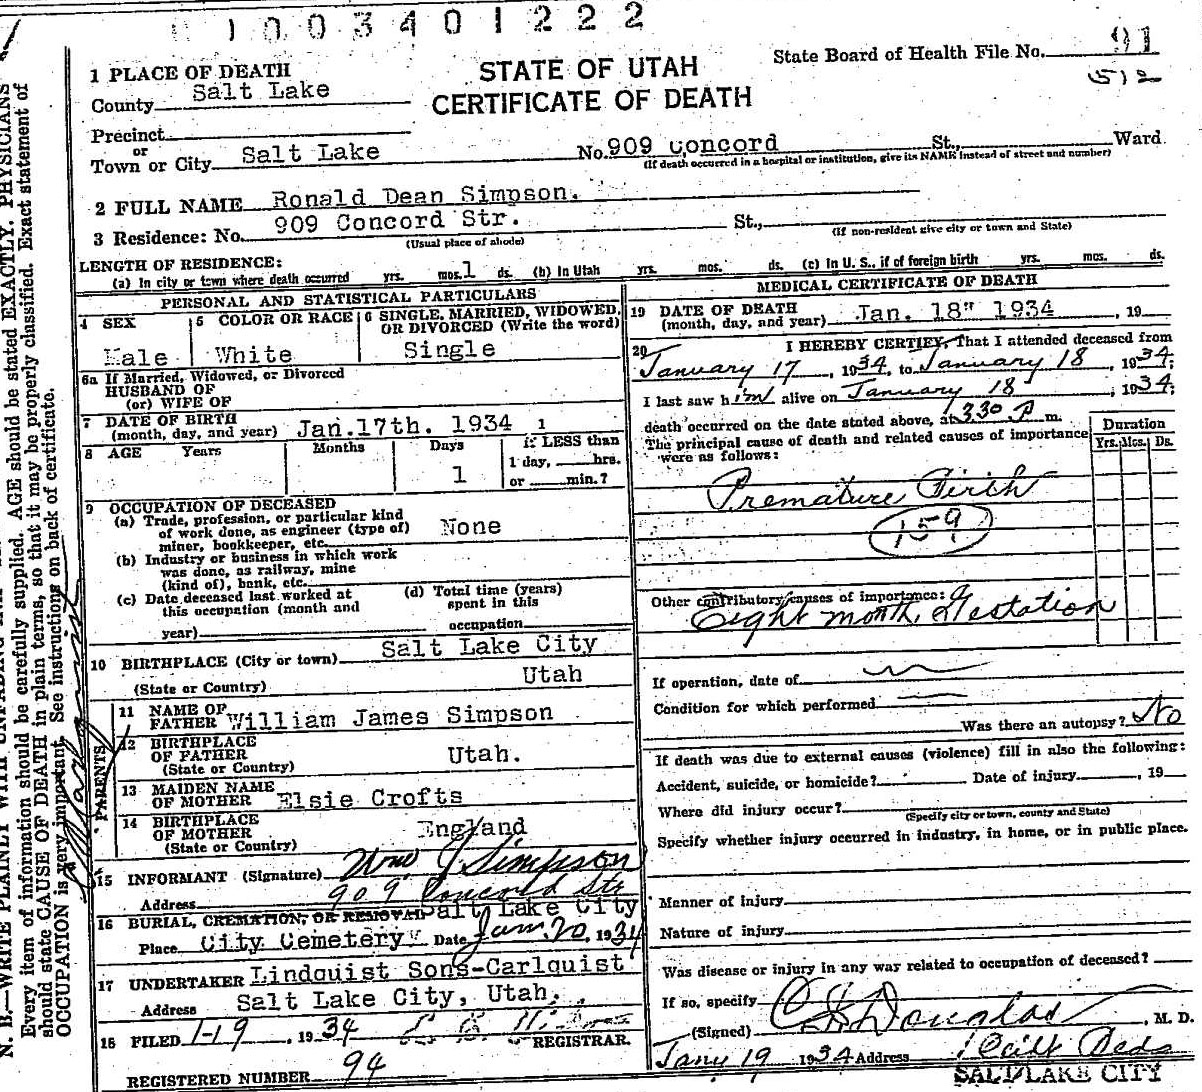 1003401222
State Board of Health File No. 91
512
STATE OF UTAH
CERTIFICATE OF DEATH
1 PLACE OF DEATH
County Salt Lake
Precinct
or
Town or City Salt Lake No. 909 Concord St., Ward
(If death occurred in a hospital or institution, give its NAME instead of street and number)
2 FULL NAME Ronald Dean Simpson.
3 Residence: No. 909 Concord Str. St.,
(Usual place of abode) (If non-resident give city or town and State)
LENGTH OF RESIDENCE:
(a) In city or town where death occurred yrs. mos. 1 ds. (b) In Utah yrs. mos. ds. (c) In U. S., if of foreign birth yrs. mos. ds.
PERSONAL AND STATISTICAL PARTICULARS
4 SEX
Male
5 COLOR OR RACE
White
6 SINGLE, MARRIED, WIDOWED, OR DIVORCED (Write the word)
Single
6a If Married, Widowed, or Divorced
HUSBAND OF
(or) WIFE OF
7 DATE OF BIRTH
(month, day, and year) Jan.17th. 1934 1
8 AGE Years Months Days If LESS than
1 1 day, hrs.
or min.?
9 OCCUPATION OF DECEASED
(a) Trade, profession, or particular kind
of work done, as engineer (type of)
miner, bookkeeper, etc. None
(b) Industry or business in which work
was done, as railway, mine
(kind of), bank, etc.
(c) Date deceased last worked at
this occupation (month and
year)
(d) Total time (years)
spent in this
occupation
10 BIRTHPLACE (City or town) Salt Lake City
(State or Country) Utah
PARENTS
11 NAME OF
FATHER William James Simpson
12 BIRTHPLACE
OF FATHER
(State or Country) Utah.
13 MAIDEN NAME
OF MOTHER Elsie Crofts
14 BIRTHPLACE
OF MOTHER
(State or Country) England
15 INFORMANT (Signature) Wm J Simpson
Address 909 Concord Str
16 BURIAL, CREMATION, OR REMOVAL Salt Lake City
Place City Cemetery Date Jan. 20, 1934
17 UNDERTAKER Lindquist Sons-Carlquist
Address Salt Lake City, Utah.
18 FILED 1-19, 1934
REGISTRAR.
REGISTERED NUMBER 94
MEDICAL CERTIFICATE OF DEATH
19 DATE OF DEATH
(month, day, and year) Jan. 18" 1934, 19
20 I HEREBY CERTIFY, That I attended deceased from
January 17, 1934, to January 18, 1934;
I last saw him alive on January 18, 1934;
death occurred on the date stated above, at 3.30 P. m.
The principal cause of death and related causes of importance
were as follows:
Duration
Yrs. Mos. Ds.
Premature Birth
159
Other contributory causes of importance:
Eight month Gestation
If operation, date of
Condition for which performed
Was there an autopsy? No
If death was due to external causes (violence) fill in also the following:
Accident, suicide, or homicide? Date of injury, 19
Where did injury occur?
(Specify city or town, county and State)
Specify whether injury occurred in industry, in home, or in public place.
Manner of injury
Nature of injury
Was disease or injury in any way related to occupation of deceased?
If so, specify
(Signed) Douglas, M. D.
Jany 19 1934 Address
SALT LAKE CITY
N. B.—WRITE PLAINLY WITH UNFADING
Every item of information should be carefully supplied. AGE should be stated EXACTLY. PHYSICIANS
should state CAUSE OF DEATH in plain terms, so that it may be properly classified. Exact statement of
OCCUPATION is very important. See instructions on back of certificate.